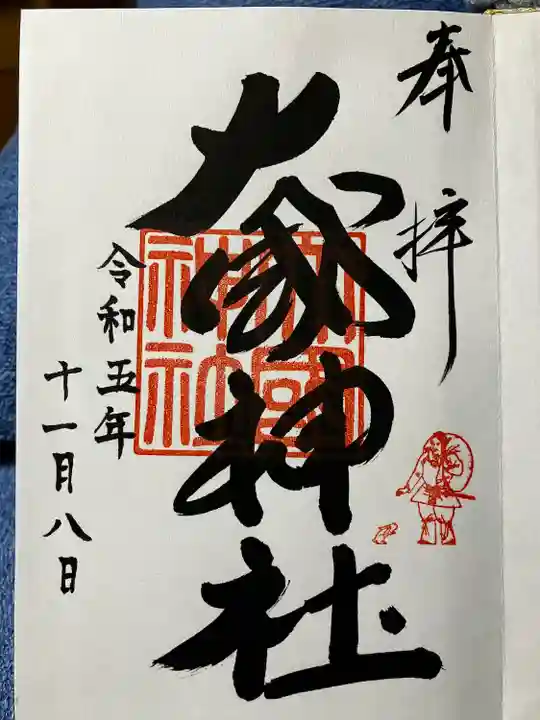 奉拝
大國神社
大國神社
令和五年
十一月八日